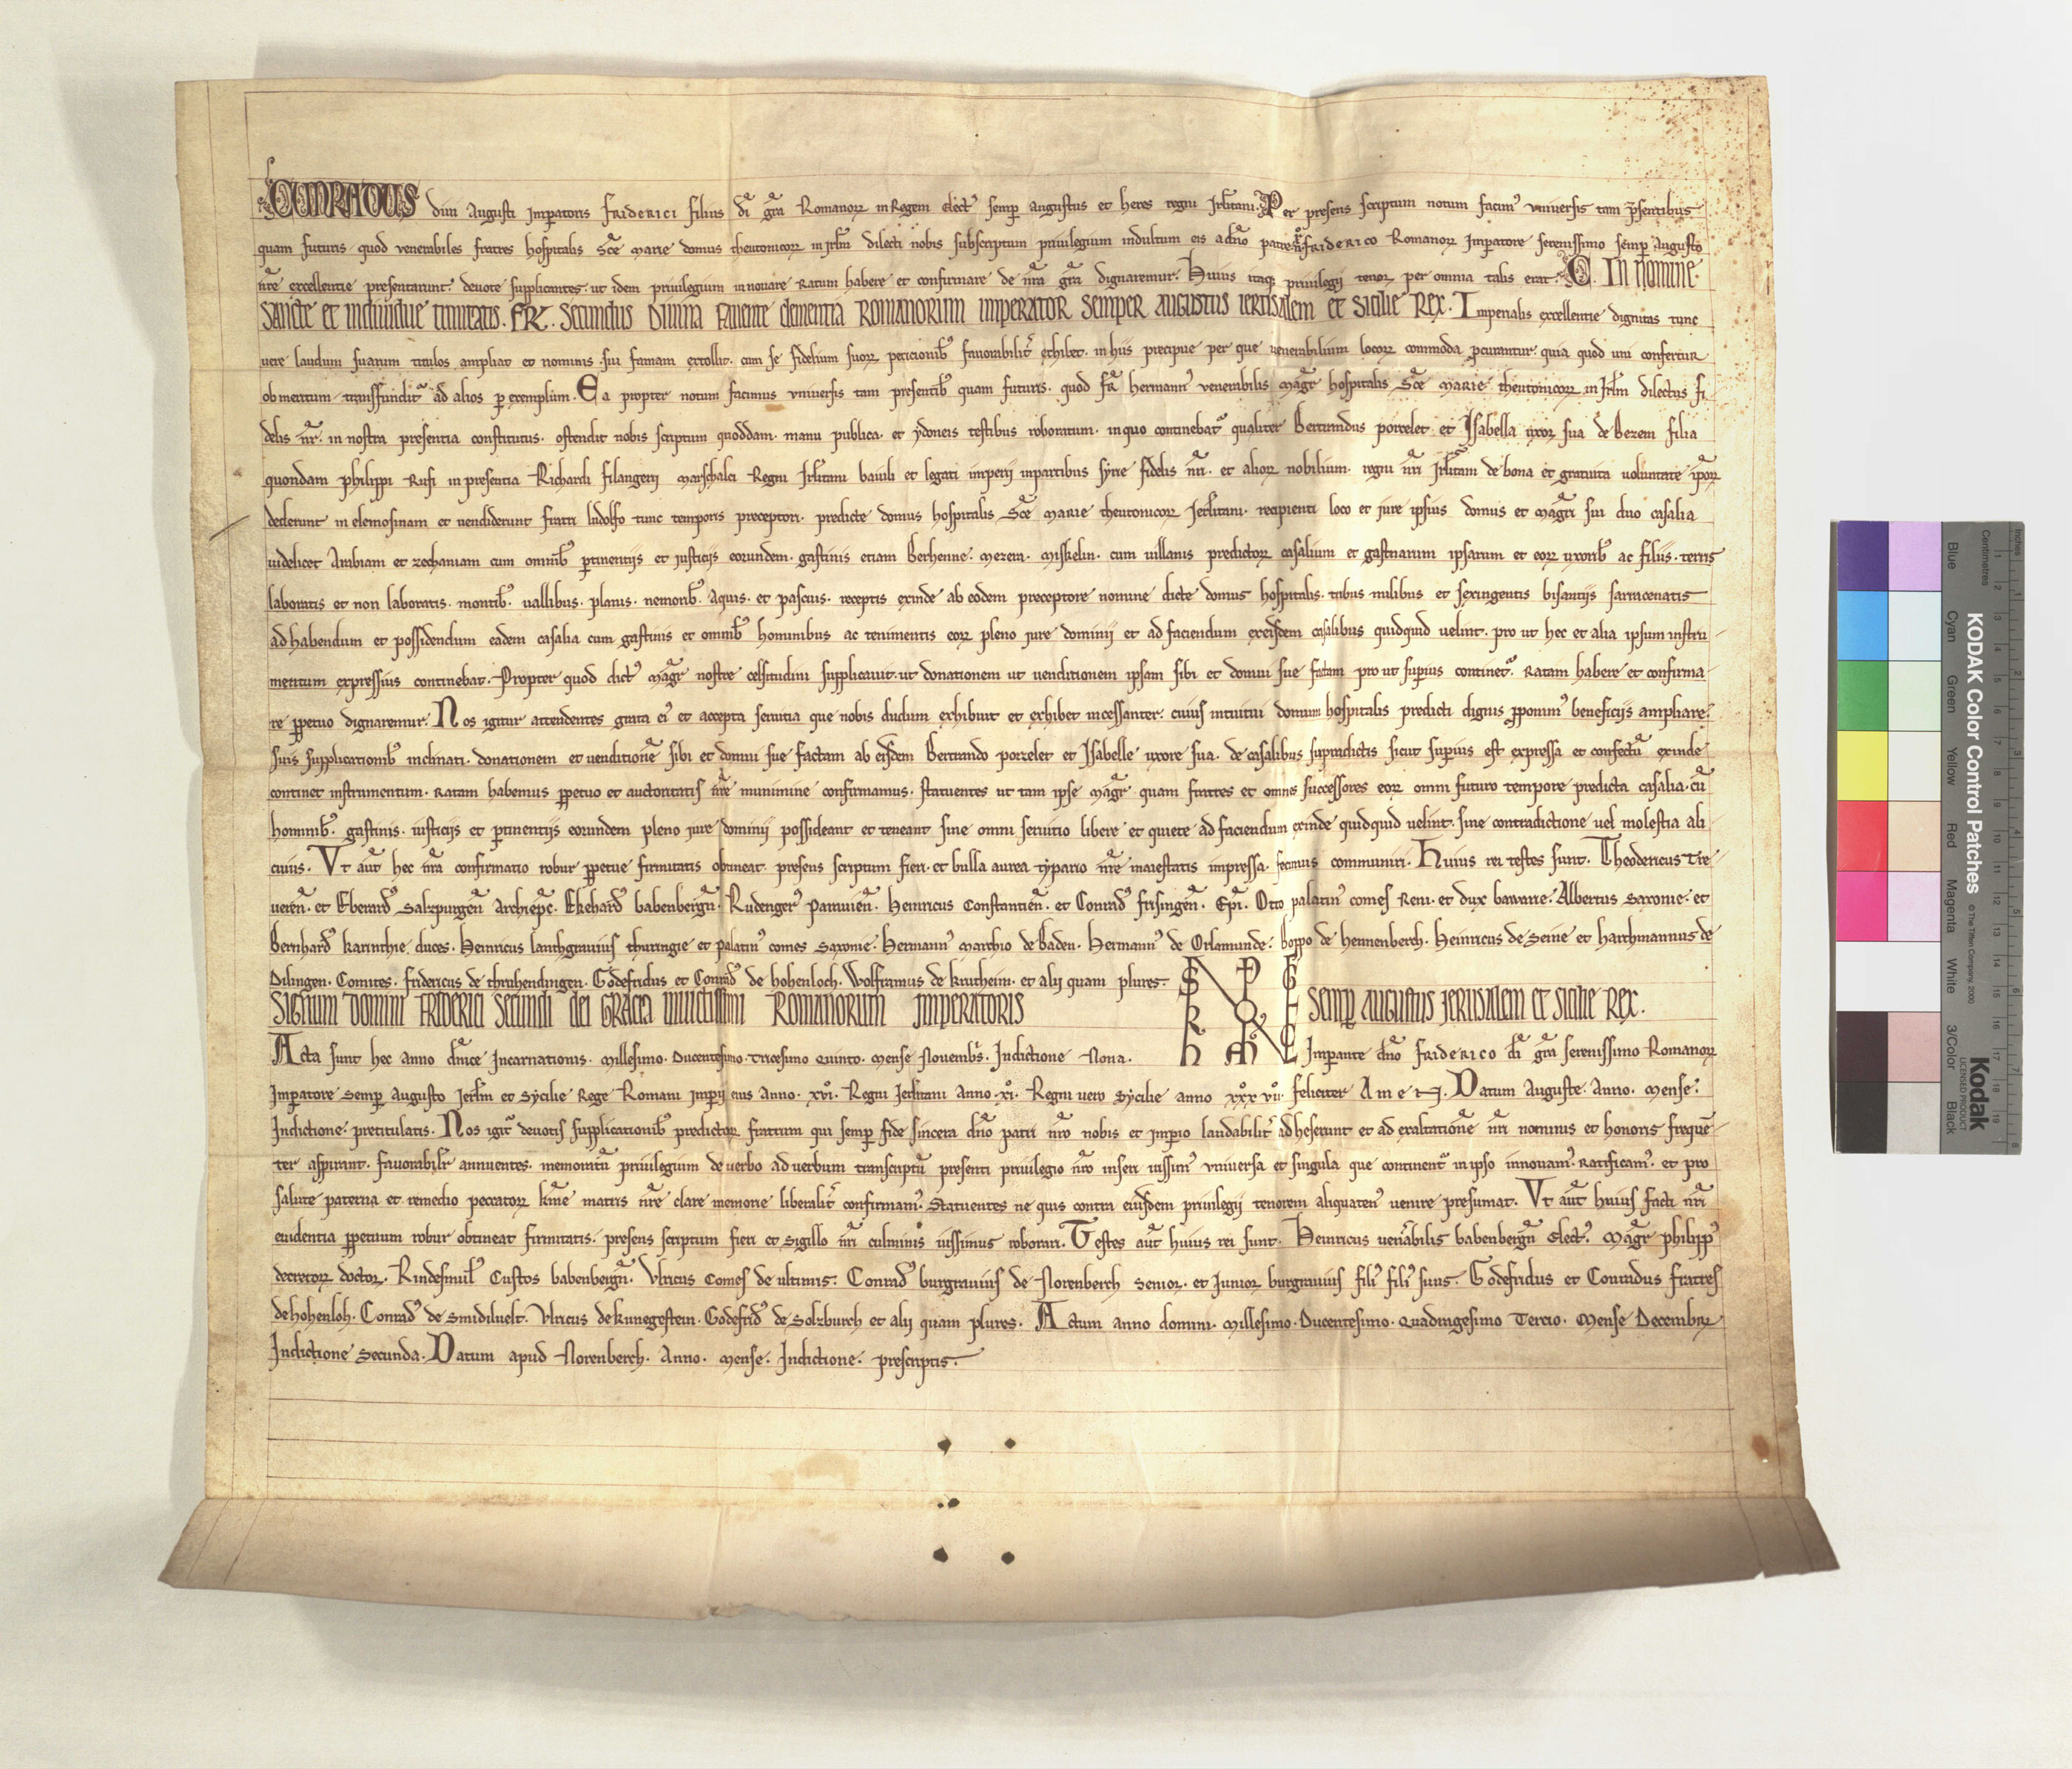 CUNRADUS diui Augusti Imperatoris Friderici filius di gra Romanorum in Regem elect' semper augustus et heres regni Irl'mitani. Per presens scriptum notum facim' vniuersis tam presentibus
quam futuris quod venerabiles fratres hospitalis Sce Marie domus theutonicorum in Irl'm dilecti nobis subscriptum priuilegium indultum eis a dno patre nro Friderico Romanorum Imperatore serenissimo semper Augusto
nre excellentie presentarunt deuote supplicantes ut idem priuilegium innouare Ratum habere et confirmare de nra gra dignaremur. Huius itaque priuilegii tenor per omnia talis erat. C. In nomine
sancte et indiuidue trinitatis. FR. Secundus Diuina Fauente clementia Romanorum imperator semper augustus ierusalem et sicilie Rex. Imperialis excellentie dignitas tunc
uere laudum suarum titulos ampliat et nominis sui famam extollit. cum se fidelium suorum peticionib' fauorabilit' exhibet. in hiis precipue per que venerabilium locorum commoda procurantur. quia quod uni confertur
ob meritum transfundit' ad alios per exemplum. Ea propter notum facimus vniuersis tam presentib' quam futuris. quod fr hermann' venerabilis magr hospitalis Sce Marie theutonicorum in Irl'm dilectus fi
delis nr. in nostra presentia constitutus. ostendit nobis scriptum quoddam. manu publica. et ydoneis testibus roboratum. in quo continebat' qualiter Bertrandus porcelet et Isabella uxor sua de Bezem filia
quondam philippi Rufi in presentia Richardi filangerii marschalci Regni Irl'mitani baiuli et legati imperii in partibus syrie fidelis nri. et aliorum nobilium regni nri Irl'mitani de bona et gratuita voluntate ipsorum
dederunt in elemosinam et uendiderunt fratri ludolfo tunc temporis preceptori. predicte domus hospitalis Sce Marie theutonicorum Ierl'mitani. recipienti loco et jure ipsius domus et magri sui duo casalia
uidelicet Ambiam et zechaniam cum omnib' pertinentiis et justiciis eorundem. gastinis etiam Berhenne. mezera. miskelin. cum uillanis predictorum casalium et gastinarum ipsarum et eorum uxorib' ac filiis. terris
laboratis et non laboratis. montib'. uallibus. planis. nemorib'. aquis. et pascuis. receptis exinde ab eodem preceptore nomine dicte domus hospitalis. tribus milibus et sexingentis bisantiis sarracenatis
ad habendum et possidendum eadem casalia cum gastinis et omnib' hominibus ac tenimentis eorum pleno jure dominii et ad faciendum ex eisdem casalibus quidquid uelint. pro ut hec et alia ipsum instru
mentum expressius continebat. Propter quod dict' magr nostre celsitudini supplicauit. ut donationem ut uenditionem ipsam sibi et domui sue factam pro ut superius continet'. Ratam habere et confirma
re perpetuo dignaremur. Nos igitur attendentes grata ei' et accepta seruitia que nobis dudum exhibuit et exhibet incessanter. cuius intuitu domum hospitalis predicti dignis proponim' beneficiis ampliare.
suis supplicationib' inclinati. donationem et uenditione sibi et domui sue factam ab eisdem Bertrando porzelet et Isabelle uxore sua. de casalibus supradictis sicut superius est expressa et confectu exinde
continet instrumentum. Ratam habemus perpetuo et auctoritatis nre munimine confirmamus. statuentes ut tam ipse magr quam fratres et omnes successores eorum omni futuro tempore predicta casalia. cu
hominib'. gastinis. iusticiis et pertinentiis eorundem pleno jure dominii possideant et teneant sine omni seruitio libere et quiete ad faciendum exinde quidquid uelint. sine contradictione uel molestia ali
cuius. Vt aut hec nra confirmatio robur perpetue firmitatis obtineat. presens scriptum fieri. et bulla aurea typario nre maiestatis impressa. fecimus communiri. Huius rei testes sunt. Theodericus Tre
ueren. et Eberard' Salzpurgen Archiepc. Ekehard' babenbergn. Rudenger' patauien. Heinricus Constantien. et Conrad' frisingen. Epi. Otto palatin' comes Reni et dux bawarie. Albertus Saxonie. et
Bernhard' karinthie duces. Heinricus lanthgrauius thuringie et palatin' comes Saxonie. Hermann' marchio de Baden. Hermann' de Orlamunde. Boppo de hennenberch. Heinricus de Seine et harthmannus de
Dilingen. Comites. fridericus de thruhendingen. Godefridus et Conrad' de hohenloch. Wolframus de krutheim. et alij quam plures.
Signum domini Friderici secundi dei gracia inuictissimi Romanorum imperatoris semper augustus ierusalem et sicilie Rex.
Acta sunt hec anno dnice Incarnationis. millesimo. Ducentesimo. Tricesimo Quinto. mense Nouembr. Indictione Nona. Imperante dno Friderico di gra serenissimo Romanorum
Imperatore semper Augusto Ierl'm et Sycilie Rege Romani Imperij eius anno. xvi. Regni Ierl'mitani anno. xi. Regni uero Sycilie anno xxxvii. feliciter Amen. Datum Auguste. Anno. mense.
Indictione. pretitulatis. Nos igit' deuotis supplicationib' predictorum fratrum qui semper fide sincera dno patri nro nobis et imperio laudabilit' adheserunt et ad exaltatione nri nominis et honoris freque
ter aspirant. fauorabilit' annuentes. memoratu priuilegium de verbo ad verbum transcriptu presenti priuilegio nro inseri iussim' vniuersa et singula que continent' in ipso innouam'. Ratificam'. et pro
salute paterna et remedio peccatorum kme matris nre clare memorie liberalit' confirmam'. Statuentes ne quis contra eiusdem priuilegii tenorem aliquaten' venire presumat. Vt aut huius facti nri
euidentia perpetuum robur obtineat firmitatis. presens scriptum fieri et sigillo nri culminis iussimus roborari. Testes aut huius rei sunt. Heinricus venabilis babenbergn Elect'. magr philipp'
decretorum doctor. Rindesmul' Custos babenbergn. Vlricus Comes de ultimis. Conrad' burgrauius de Norenberch senior. et Iunior burgrauius fili' fili' suus. Godefridus et Conradus fratres
de hohenloh. Conrad' de Smidiluelt. Vlricus de kunegestein. Godefrid' de Solzburch et alij quam plures. Actum anno domini. millesimo. Ducentesimo. Quadragesimo Tercio. mense Decembri
Indictione Secunda. Datum apud Norenberch. Anno. mense. Indictione. prescriptis.
KODAK Color Control Patches
© The Tiffen Company, 2000
Kodak
LICENSED PRODUCT
Inches
Centimetres
Blue Cyan Green Yellow Red Magenta White 3/Color Black